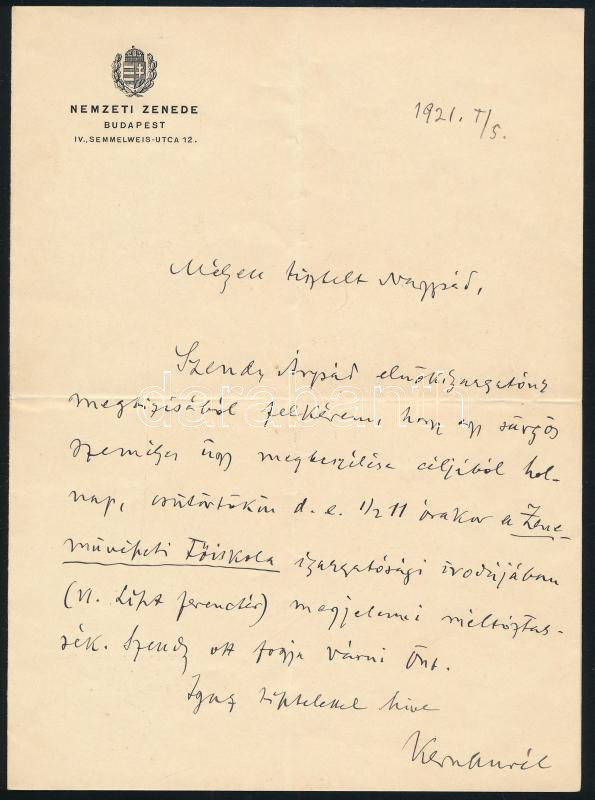 NEMZETI ZENEDE
BUDAPEST
IV., SEMMELWEIS-UTCA 12.
1921. I/5.
Mélyen tisztelt Nagysád,
Szendy Árpád elnökigazgatónk
megbízásából felkérem, hogy egy sürgős
személyes ügy megbeszélése céljából hol-
nap, csütörtökön d. e. 1/2 11 órakor a Zene-
művészeti Főiskola igazgatósági irodájában
(VI. Liszt Ferenc tér) megjelenni méltóztas-
sék. Szendy ott fogja várni Önt.
Igaz tisztelettel híve
Kern Aurél
darabanth